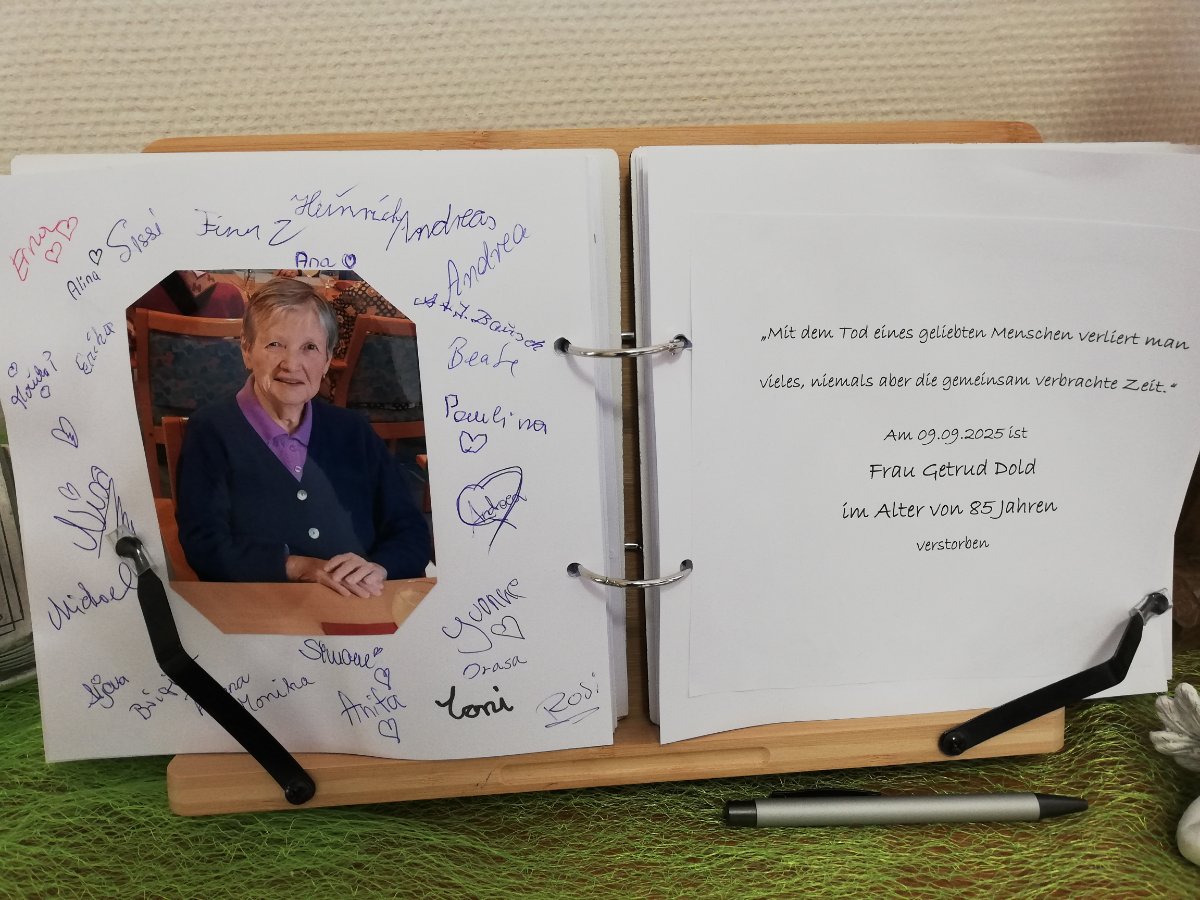 Erna
Alina
Sissi
Finn Z
Heinrich
Andreas
Ana
Andrea
Bausch
Erika
Beate
Paulina
Nina
Andreea
Michael
Yvonne
Simone
Drasa
Monika
Anita
Toni
Rosi
„Mit dem Tod eines geliebten Menschen verliert man
vieles, niemals aber die gemeinsam verbrachte Zeit.“
Am 09.09.2025 ist
Frau Getrud Dold
im Alter von 85 Jahren
verstorben